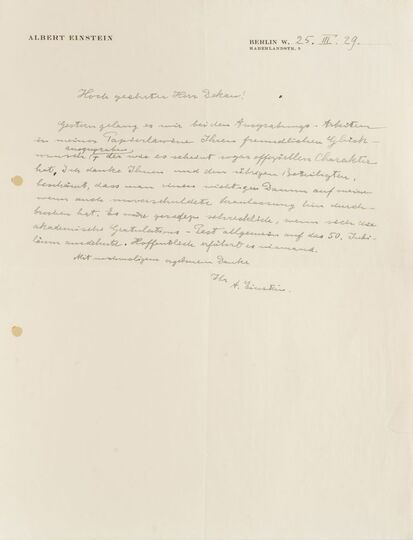 ALBERT EINSTEIN
BERLIN W. 25. III. 29.
HABERLANDSTR. 5
Hoch geehrter Herr Dekan!
Gestern gelang es mir bei den Ausgrabungs-Arbeiten
in meiner Papierlawine Ihren freundlichen Glück-
wunsch auszugraben, der wie es scheint sogar offiziellen Charakter
hat. Ich danke Ihnen und den übrigen Beteiligten,
beschämt, dass man einen wichtigen Damm auf meine
wenn auch unverschuldete Veranlassung hin durch-
brochen hat. Es wäre geradezu schrecklich, wenn sich die
akademische Gratulations-Pest allgemein auf das 50. Jubi-
läum ausdehnte. Hoffentlich erfährt es niemand.
Mit nochmaligem ergebenem Danke
Ihr
A. Einstein.